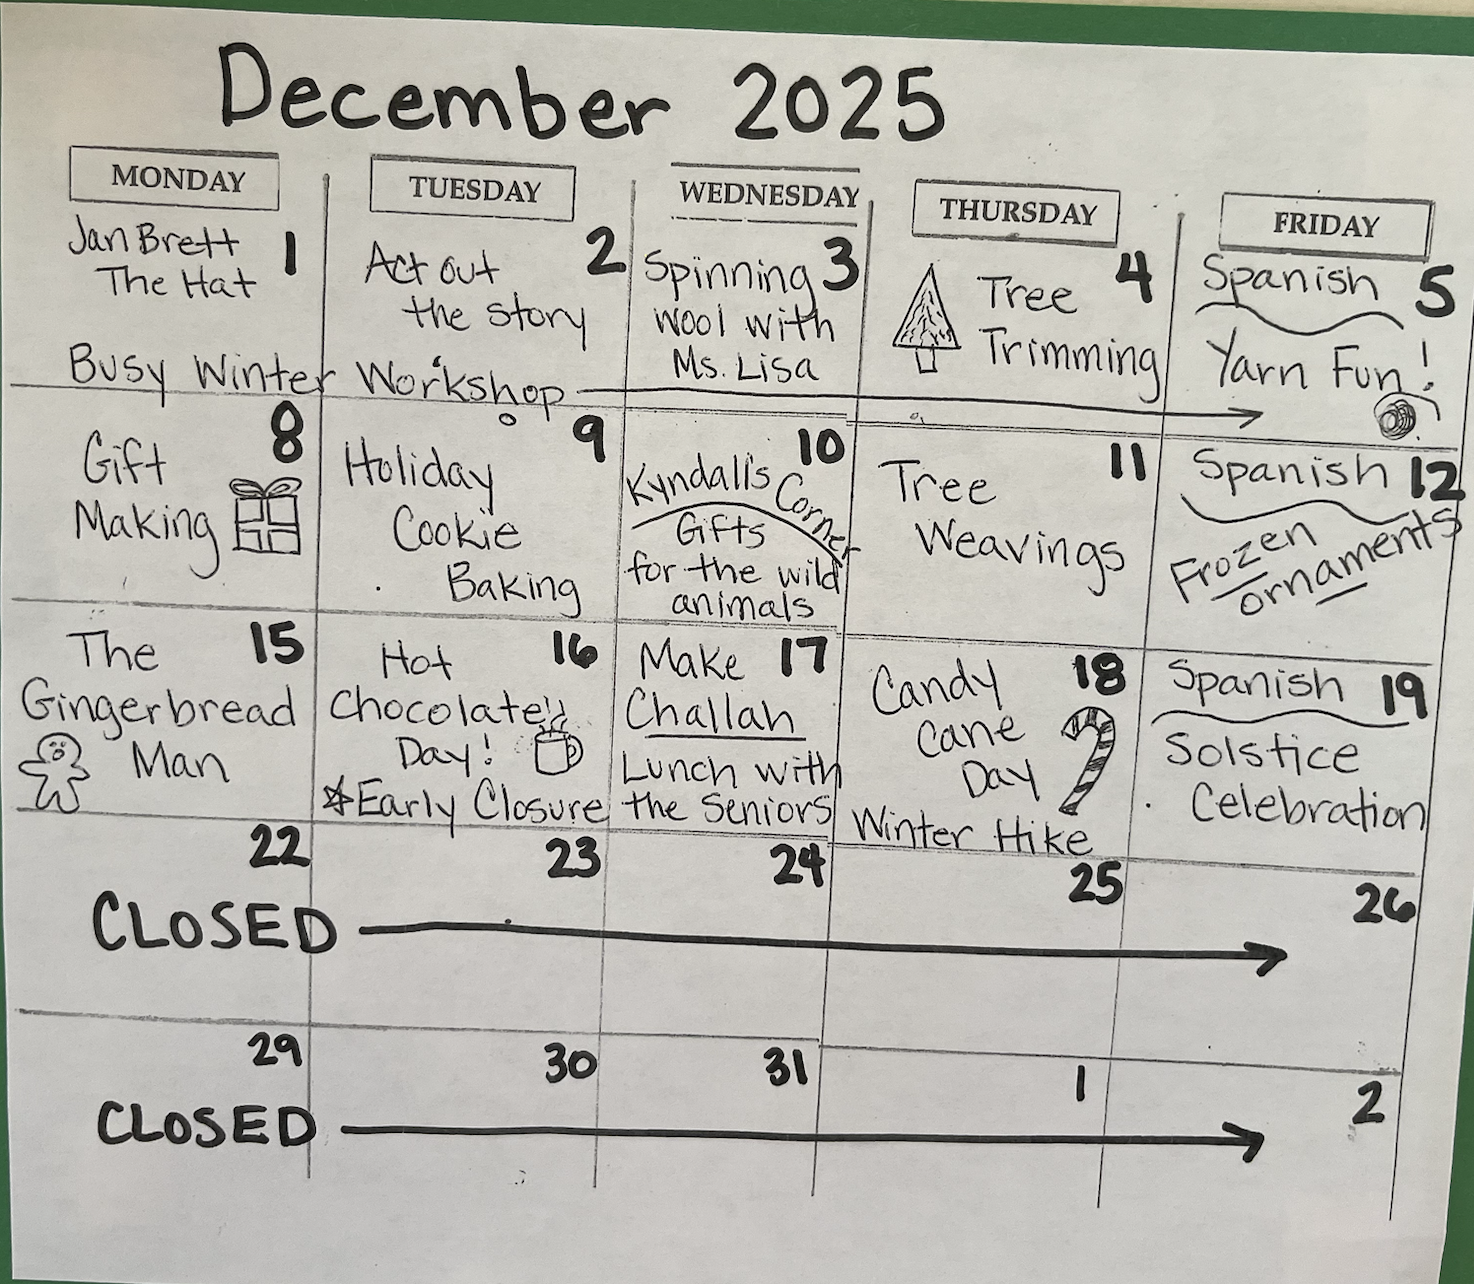 December 2025
MONDAY TUESDAY WEDNESDAY THURSDAY FRIDAY
1
Jan Brett
The Hat
2
Act out
the story
3
Spinning
wool with
Ms. Lisa
4
Tree
Trimming
5
Spanish
Yarn Fun!
Busy Winter Workshop
8
Gift
Making
9
Holiday
Cookie
Baking
10
Kyndall's Corner
Gifts
for the wild
animals
11
Tree
Weavings
12
Spanish
Frozen
ornaments
15
The
Gingerbread
Man
16
Hot
Chocolate
Day!
*Early Closure
17
Make
Challah
Lunch with
the Seniors
18
Candy
Cane
Day
Winter Hike
19
Spanish
Solstice
Celebration
22 23 24 25 26
CLOSED
29 30 31 1 2
CLOSED